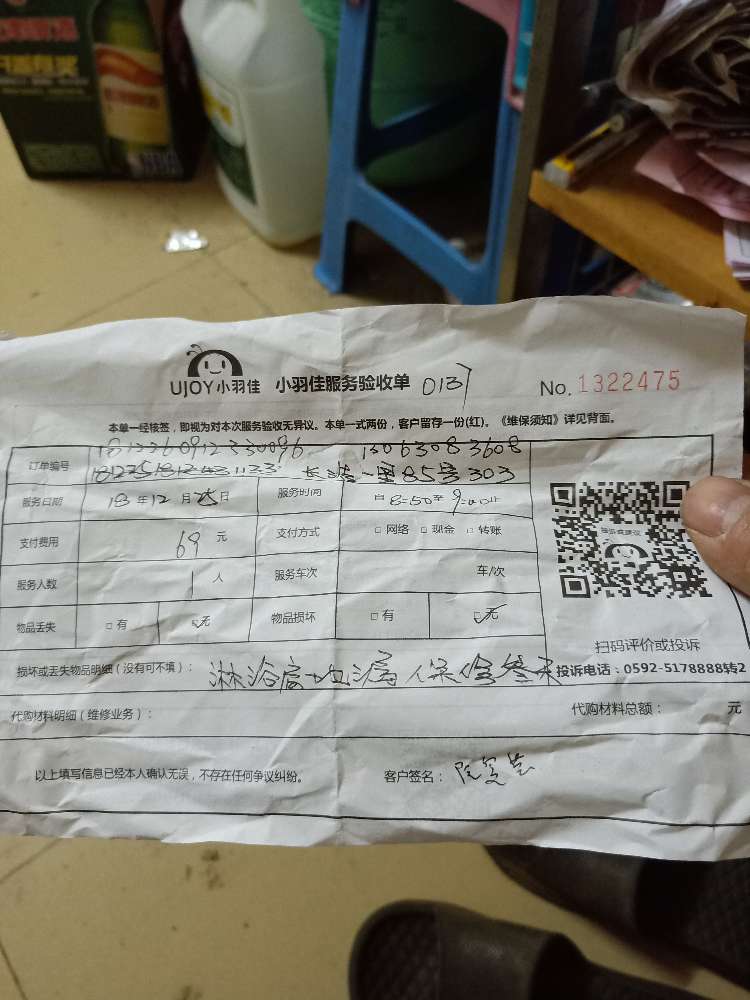 UJOY小羽佳 小羽佳服务验收单 0137 No. 1322475
本单一经核签，即视为对本次服务验收无异议。本单一式两份，客户留存一份(红)。《维保须知》详见背面。
订单编号 1812260912330096 15063083608
里85号303
服务日期 18年12月25日 服务时间 自8:50至9:00止
支付费用 69元 支付方式 □网络 □现金 □转账
服务人数 1人 服务车次 车/次
物品丢失 □有 ☑无 物品损坏 □有 ☑无
扫码评价或投诉
损坏或丢失物品明细（没有可不填）： 淋浴房地漏 投诉电话：0592-5178888转2
代购材料明细（维修业务）： 代购材料总额： 元
以上填写信息已经本人确认无误，不存在任何争议纠纷。 客户签名：